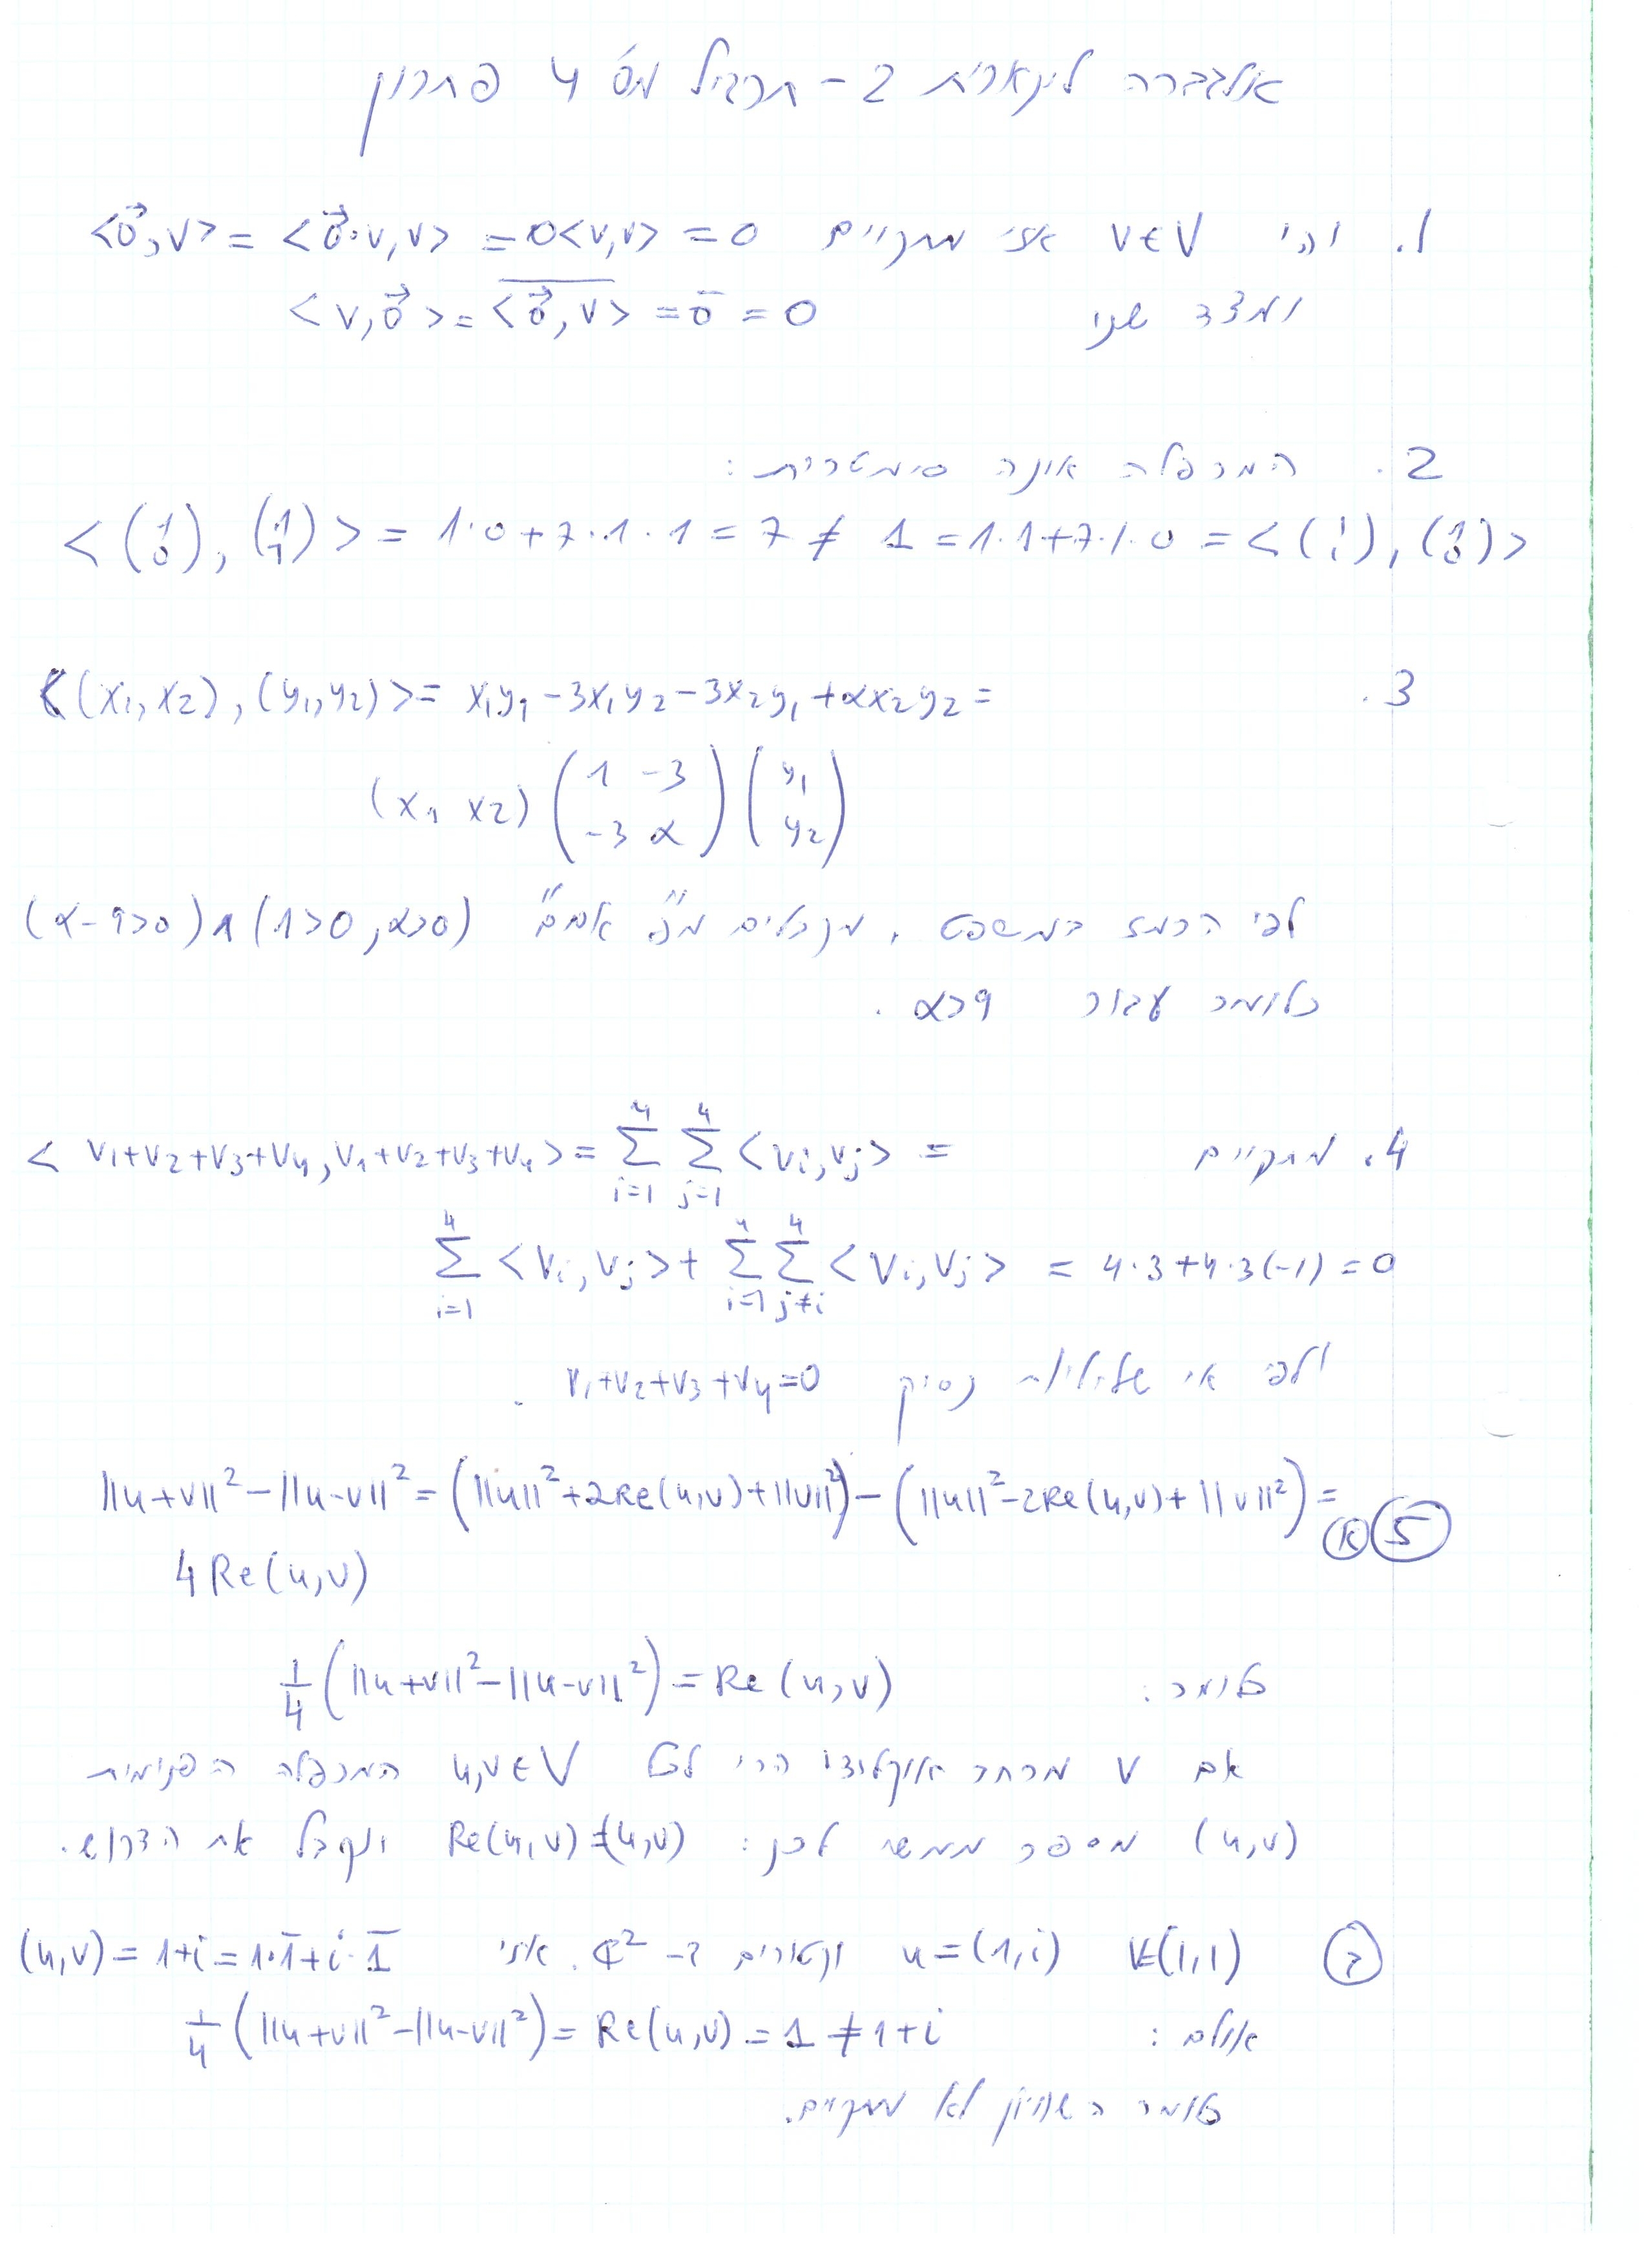 אלגברה לינארית 2 - תרגיל מס' 4 פתרון
1. יהי v∈V אזי מתקיים <0⃗,v> = <0⃗·v,v> = 0<v,v> = 0
ומצד שני <v,0⃗> = \overline{<0⃗,v>} = \overline{0} = 0
2. המכפלה אינה סימטרית:
<(1 0), (1 1)> = 1·0+7·1·1 = 7 ≠ 1 = 1·1+7·1·0 = <(1 1), (1 0)>
3. <(x₁,x₂),(y₁,y₂)> = x₁y₁-3x₁y₂-3x₂y₁+αx₂y₂ =
(x₁ x₂) (1 -3 ; -3 α) (y₁ ; y₂)
לפי הרמז במשפט, מקבלים מ"פ אמ"מ (1>0, α>0) ∧ (α-9>0)
כלומר עבור α>9.
4. מתקיים <v₁+v₂+v₃+v₄, v₁+v₂+v₃+v₄> = Σ_{i=1}^{4} Σ_{j=1}^{4} <vᵢ,vⱼ> =
Σ_{i=1}^{4} <vᵢ,vⱼ> + Σ_{i=1}^{4} Σ_{j≠i}^{4} <vᵢ,vⱼ> = 4·3+4·3(-1) = 0
ולפי אי שליליות נסיק v₁+v₂+v₃+v₄=0.
5 א ||u+v||²-||u-v||² = (||u||²+2Re(u,v)+||v||²)-(||u||²-2Re(u,v)+||v||²) =
4Re(u,v)
כלומר: 1/4(||u+v||²-||u-v||²) = Re(u,v)
אם V מרחב אוקלידי הרי לכל u,v∈V המכפלה הפנימית
(u,v) מספר ממשי לכן: Re(u,v)=(u,v) ונקבל את הדרוש.
ב v=(1,1) u=(1,i) וקטורים ב- ℂ². אזי (u,v) = 1+i = 1·\overline{1}+i·\overline{1}
אולם: 1/4(||u+v||²-||u-v||²) = Re(u,v) = 1 ≠ 1+i
כלומר השוויון לא מתקיים.